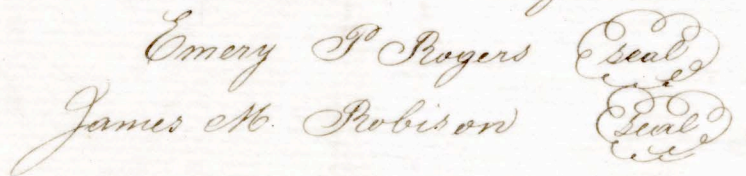 Emery P Rogers seal
James M. Robison seal